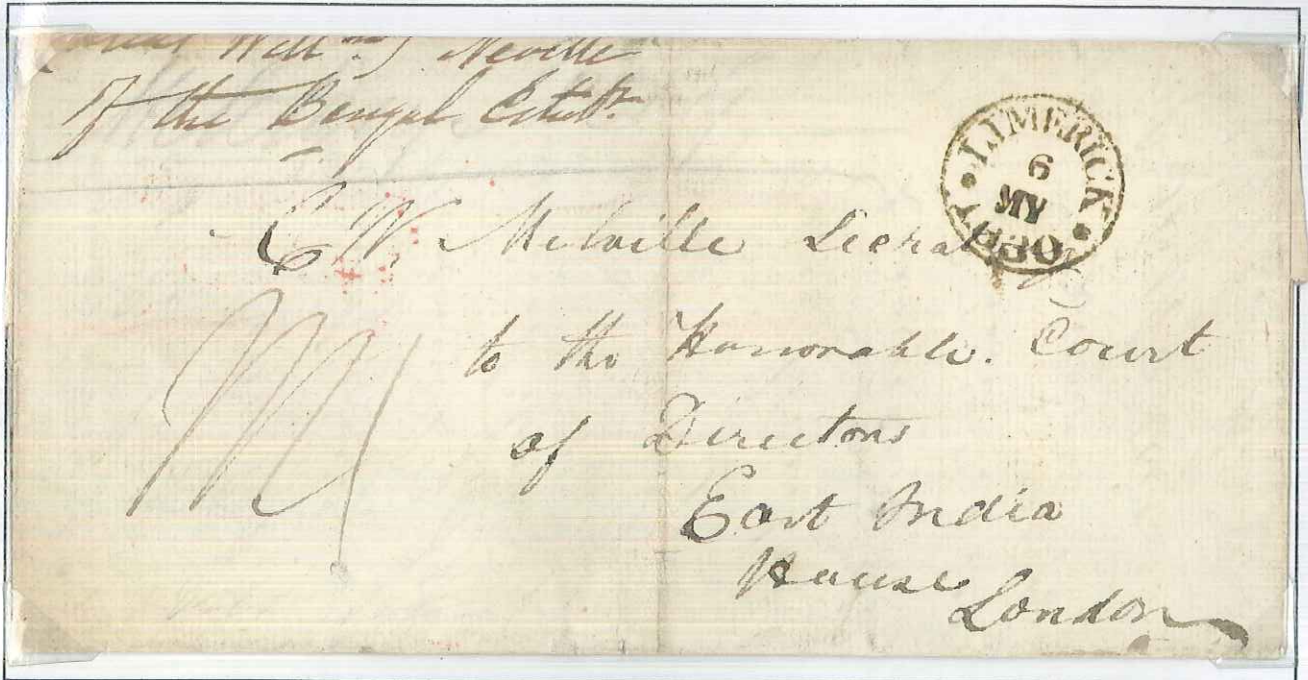 Will^m J Neville
of the Bengal Estab^t.
LIMERICK
6
MY
1830
Melville Secratary
to the Honorable. Court
of Directors
East India
House
London